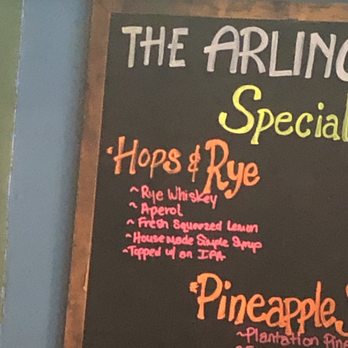 THE ARLING
Special
·Hops & Rye
~ Rye Whiskey
~ Aperol
~ Fresh Squeezed Lemon
~ House Made Simple Syrup
~ Topped w/ an IPA
Pineapple
~Plantation Pine